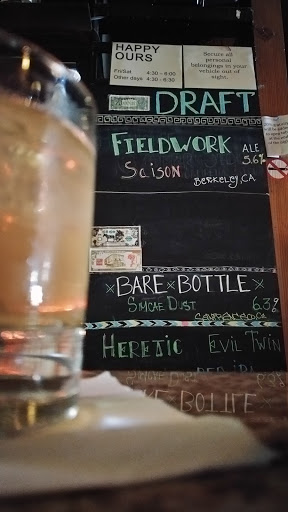 HAPPY
OURS
Fri/Sat 4:30 - 6:00
Other days 4:30 - 6:30
Secure all
personal
belongings in your
vehicle out of
sight.
DRAFT
FIELDWORK ALE
SAISON 5.6%
BERKELEY, CA
BARE BOTTLE
SIMCAE DUST 6.3%
HERETIC EVIL TWIN